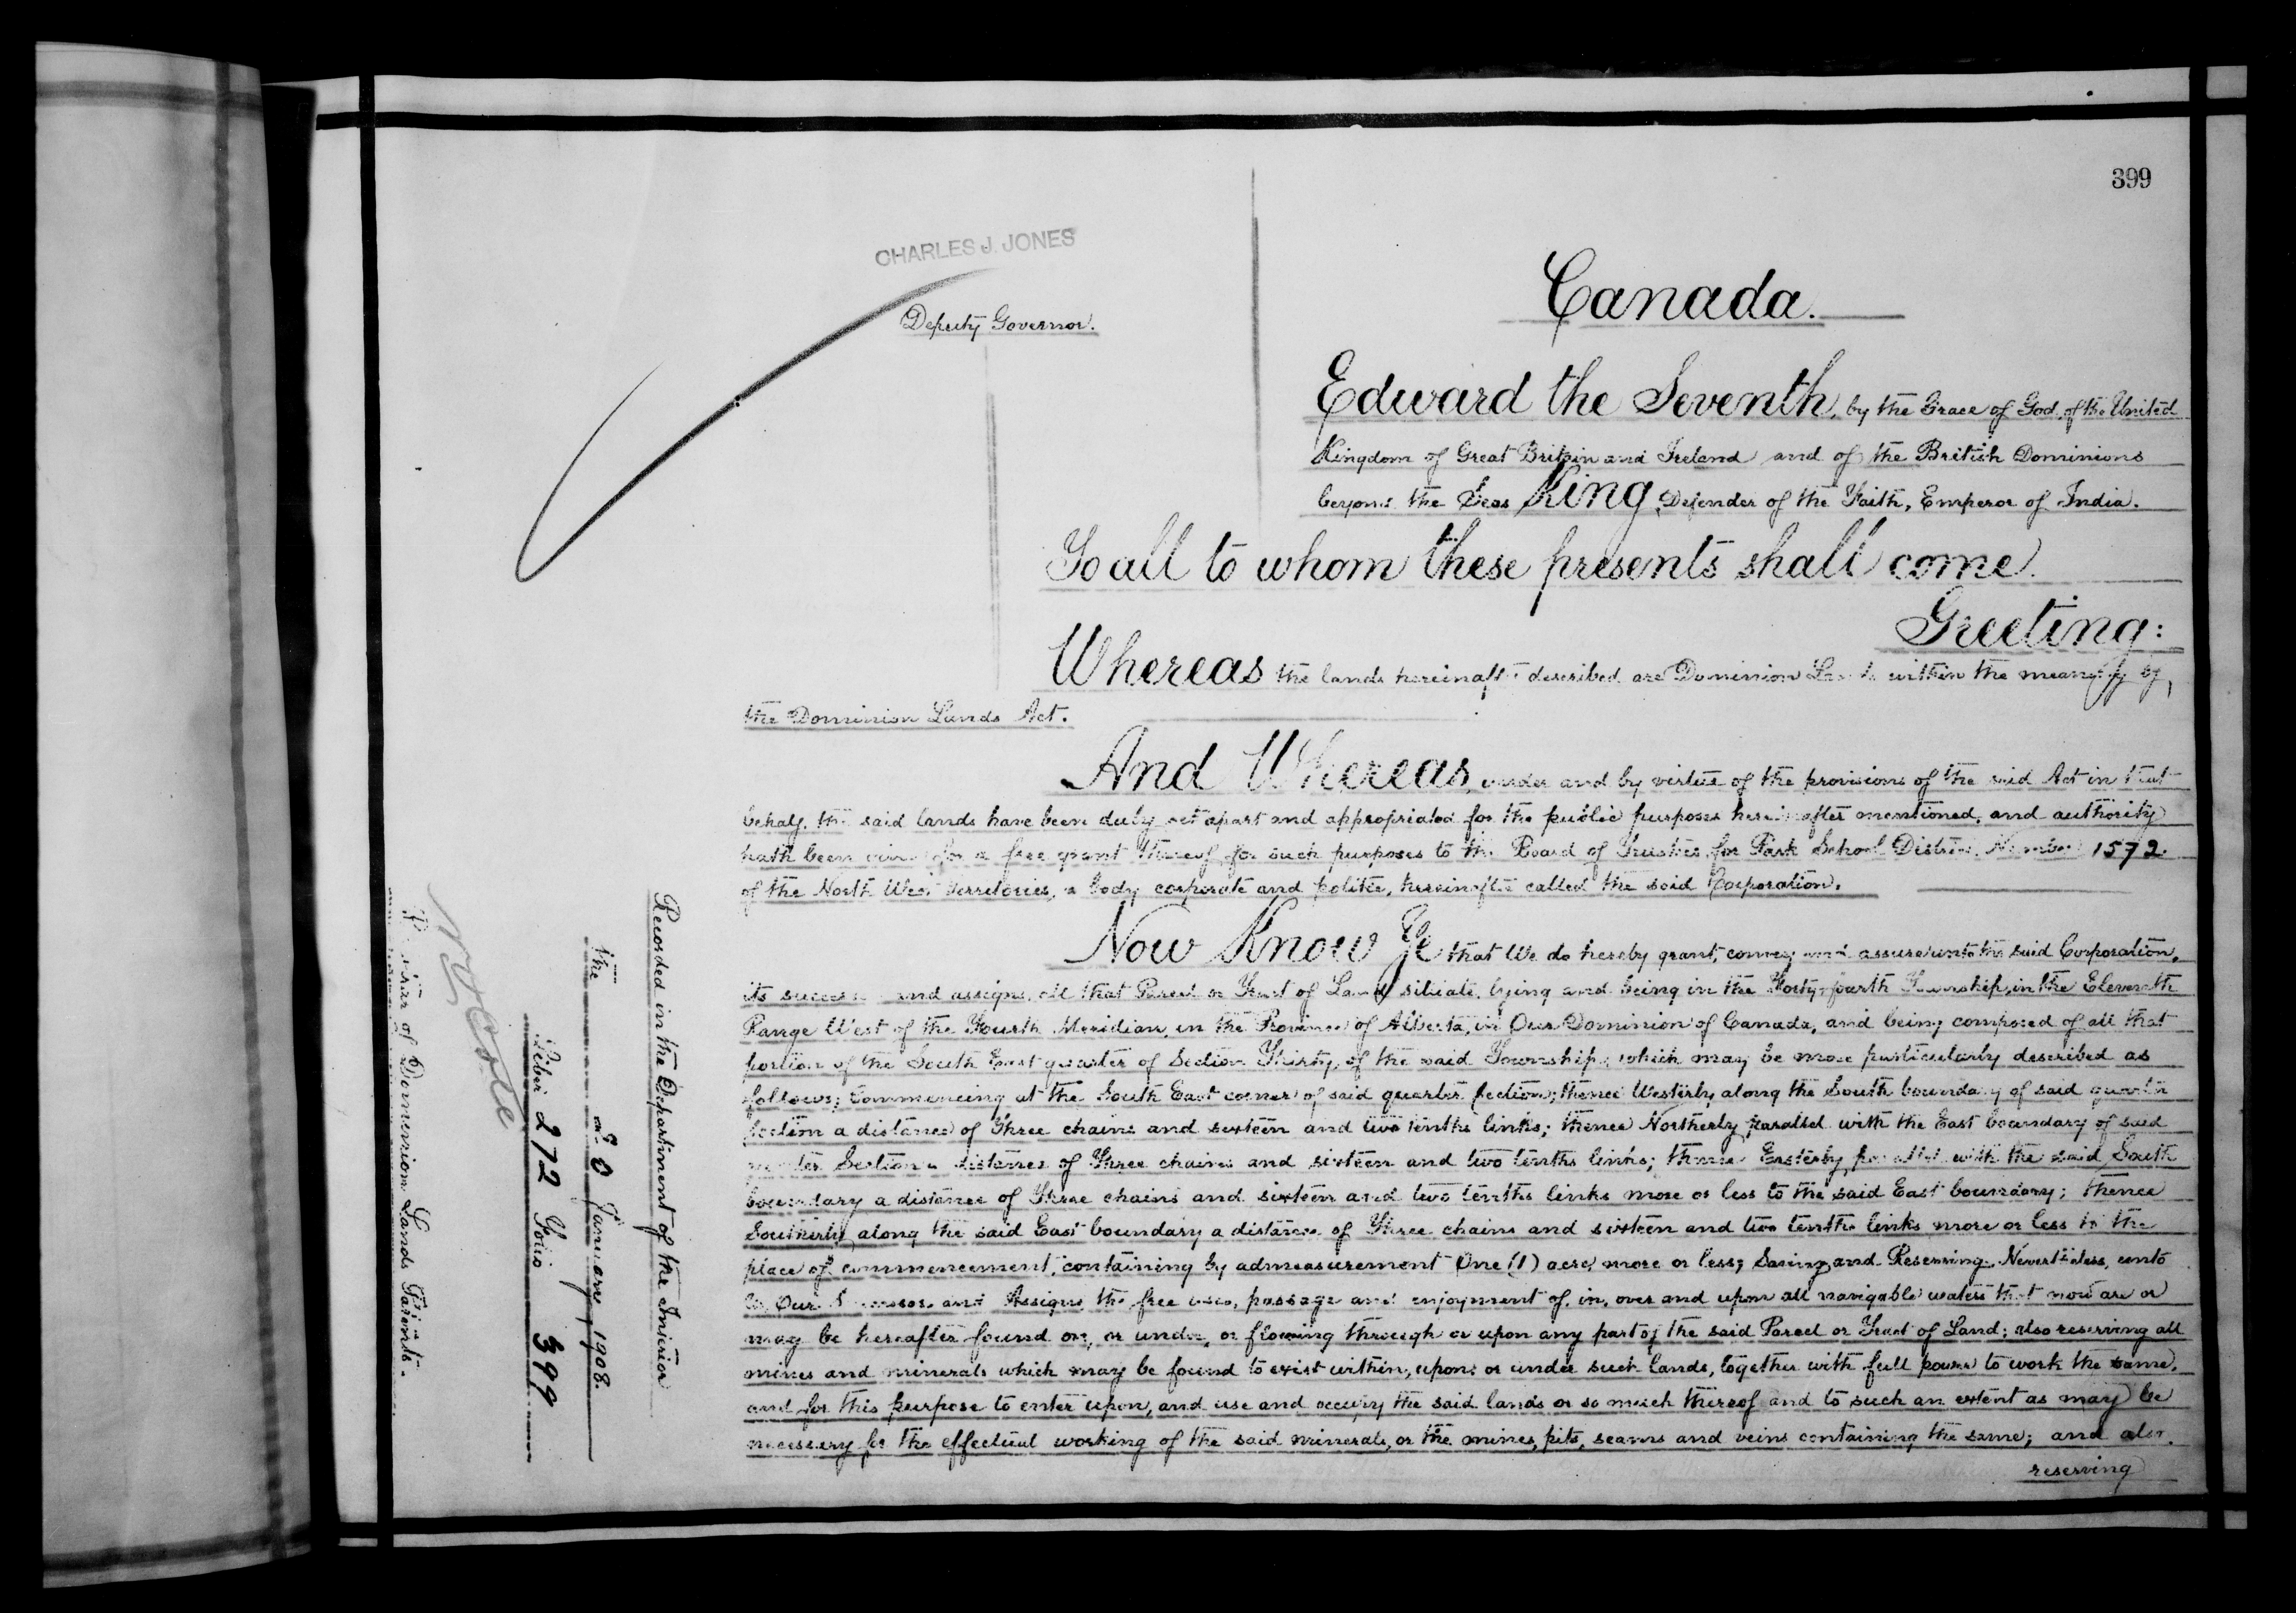 399
CHARLES J. JONES
Deputy Governor.
Canada.
Edward the Seventh, by the Grace of God, of the United
Kingdom of Great Britain and Ireland and of the British Dominions
beyond the Seas King, Defender of the Faith, Emperor of India.
To all to whom these presents shall come
Greeting:
Whereas the lands hereinafter described are Dominion Lands within the meaning of
the Dominion Lands Act.
And Whereas, under and by virtue of the provisions of the said Act in that
behalf, the said lands have been duly set apart and appropriated for the public purposes hereinafter mentioned, and authority
hath been given for a free grant thereof for such purposes to the Board of Trustees for Park School District Number 1572
of the North West Territories, a body corporate and politic, hereinafter called the said Corporation.
Now Know Ye that We do hereby grant, convey and assure unto the said Corporation,
its successors and assigns, all that Parcel or Tract of Land situate, lying and being in the Forty-fourth Township, in the Eleventh
Range West of the Fourth Meridian, in the Province of Alberta, in Our Dominion of Canada, and being composed of all that
portion of the South East quarter of Section Thirty, of the said Township, which may be more particularly described as
follows; Commencing at the South East corner of said quarter Section; thence Westerly along the South boundary of said quarter
Section a distance of Three chains and sixteen and two tenths links; thence Northerly, parallel with the East boundary of said
quarter Section a distance of Three chains and sixteen and two tenths links; thence Easterly, parallel with the said South
boundary a distance of Three chains and sixteen and two tenths links more or less to the said East boundary; thence
Southerly along the said East boundary a distance of Three chains and sixteen and two tenths links more or less to the
place of commencement, containing by admeasurement One (1) acre, more or less; Saving and Reserving, Nevertheless, unto
Us, Our Successors and Assigns the free uses, passage and enjoyment of, in, over and upon all navigable waters that now are or
may be hereafter found on, or under, or flowing through or upon any part of the said Parcel or Tract of Land; also reserving all
mines and minerals which may be found to exist within, upon or under such lands, together with full power to work the same,
and for this purpose to enter upon, and use and occupy the said lands or so much thereof and to such an extent as may be
necessary for the effectual working of the said minerals, or the mines, pits, seams and veins containing the same; and also
reserving
Recorded in the Department of the Interior
the January, 1908.
Liber 272 Folio 399
N. O. Coté
Registrar of Dominion Lands Patents.